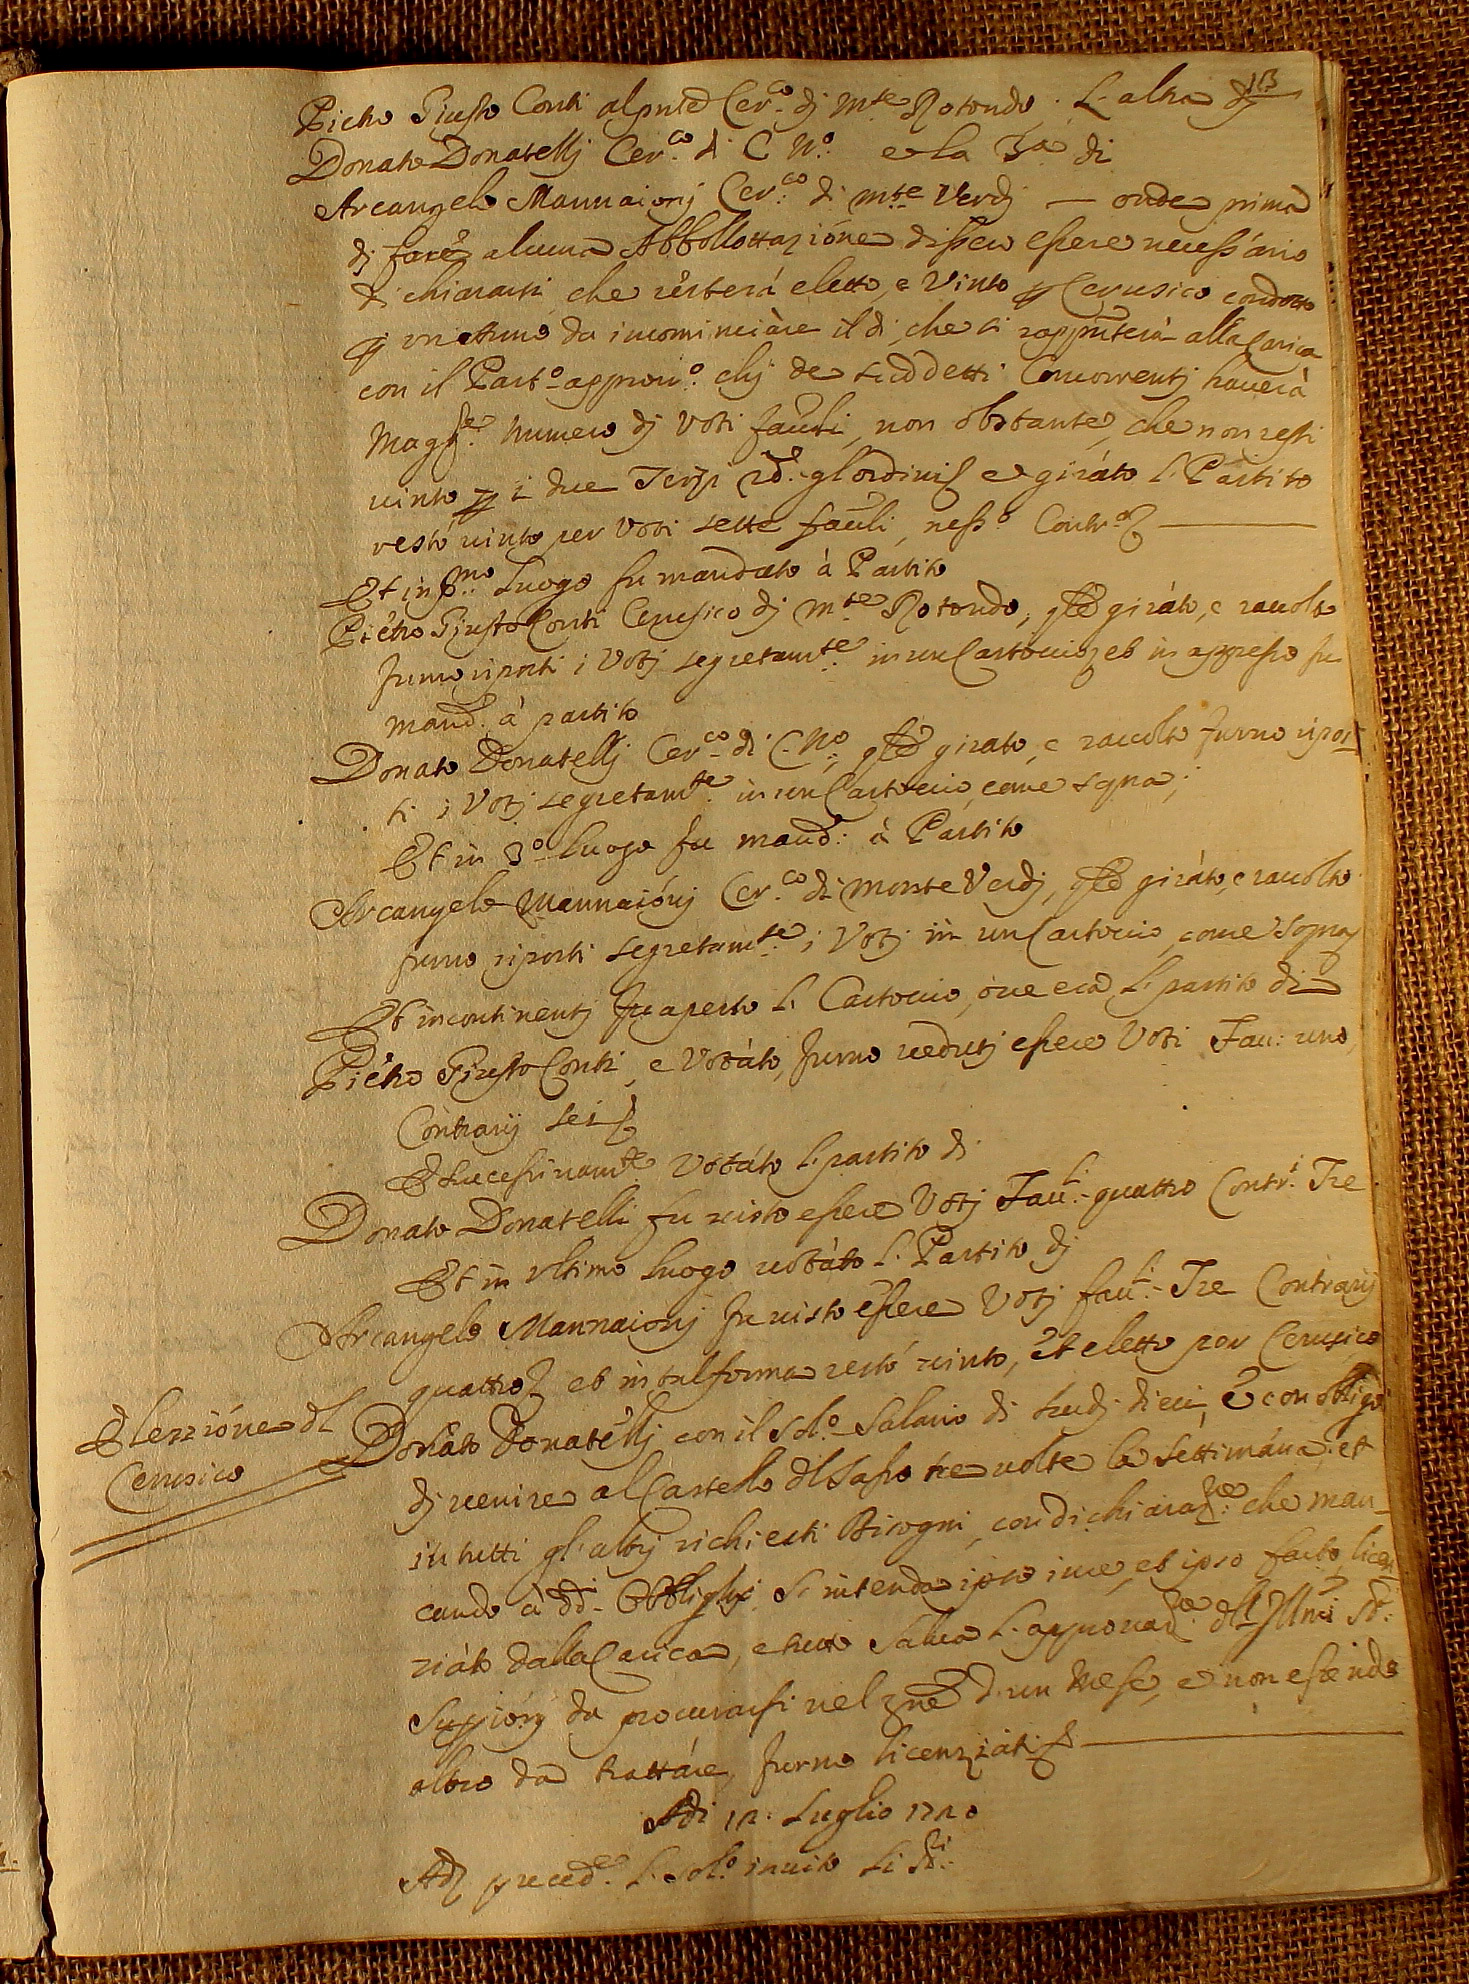 113
Pietro Giusto Conti al pnte Cer.co di Mte Rotondo. L'altra di
Donato Donatellj Cer.co di C. N.o e la 3.a di
Arcangelo Mannaionj Cer.co di Mte Verdj — onde prima
dj fare alcuna Abbollottazione dissero essere necessario
dichiararsi che resterà eletto, e Vinto p Cerusico condotto
p un Anno da incominciare il dì, che si rappnterà alla Carica
con il Part.o approu.o chj de suddetti Concorrentj hauerà
Magg.re numero dj Voti fauli, non obstante, che non resti
uinto p i due Terzi gl'ordini e girato L. Partito
restò uinto per Voti sette fauli, ness.o Contr.o
Et in p.mo Luogo fu mandato à Partito
Pietro Giusto Conti Cerusico dj Mte Rotondo, girato, e raccolto
furno riposti i Votj segretamte in un Cartoccio, et in appresso fu
mand. à partito
Donato Donatellj Cer.co di C. N.o girato, e raccolto furno ripos
ti i Votj segretamte in un Cartoccio, come sopra;
Et in 3.o Luogo fu mand: à Partito
Arcangelo Mannaionj Cer.co di Monte Verdj, girato, e raccolto
furno riposti segretamte i Votj in un Cartoccio, come sopra
Et incontinentj fu aperto L. Cartoccio, oue era L. partito di
Pietro Giusto Conti, e Votato, furno uedutj essere Voti Fau: uno,
Contrarij sei
E successiuamte Votato L. partito di
Donato Donatelli fu uisto essere Votj Fau.li quattro Contr.i Tre
Et in ultimo Luogo uotato L. Partito dj
Arcangelo Mannaionj fu uisto essere Votj fau.li Tre Contrarij
quattro et in tal forma restò uinto, et eletto per Cerusico
Elezzione dl
Cerusico
Donato Donatellj con il sol.o Salario di scudj dieci, e con obligo
dj uenire al Castello dl Sasso tre uolte la settimana, et
in tutti gl'altrj richiesti Bisogni, con dichiaraz.ne che man
cando à dd.i Obblighj s'intenda ipso iure, et ipso facto licen
ziato dalla Carica, e tutto salua L. approuaz.ne dll Ill.mi SS.ri
Suppiorj da procurarsi nel d'un Mese, e non essendo
altro da trattare, furno licenziati
Adi 12. Luglio 1720
Adj preced.e L. sol.o inuito Li SS.ri